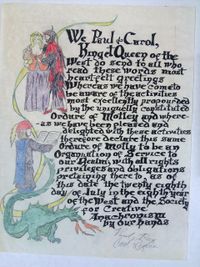 We Paul & Carol,
King & Queen of the
West do send to all who
read these words most
heartfelt greetings
Whereas we have come to
be aware of the activities
most excellently propounded
by the uniquely capitulated
Ordure of Motley and where-
as we have been pleased and
delighted with these activities
therefore declare this same
Ordure of Motly to be an
Organisation of Service to
our Realm, with all rights
privileges and obligations
pertaining thereto as of
this date the twenty eighth
day of July in the eighth year
of the West and the Society
for Creative
Anachronism
by our hands